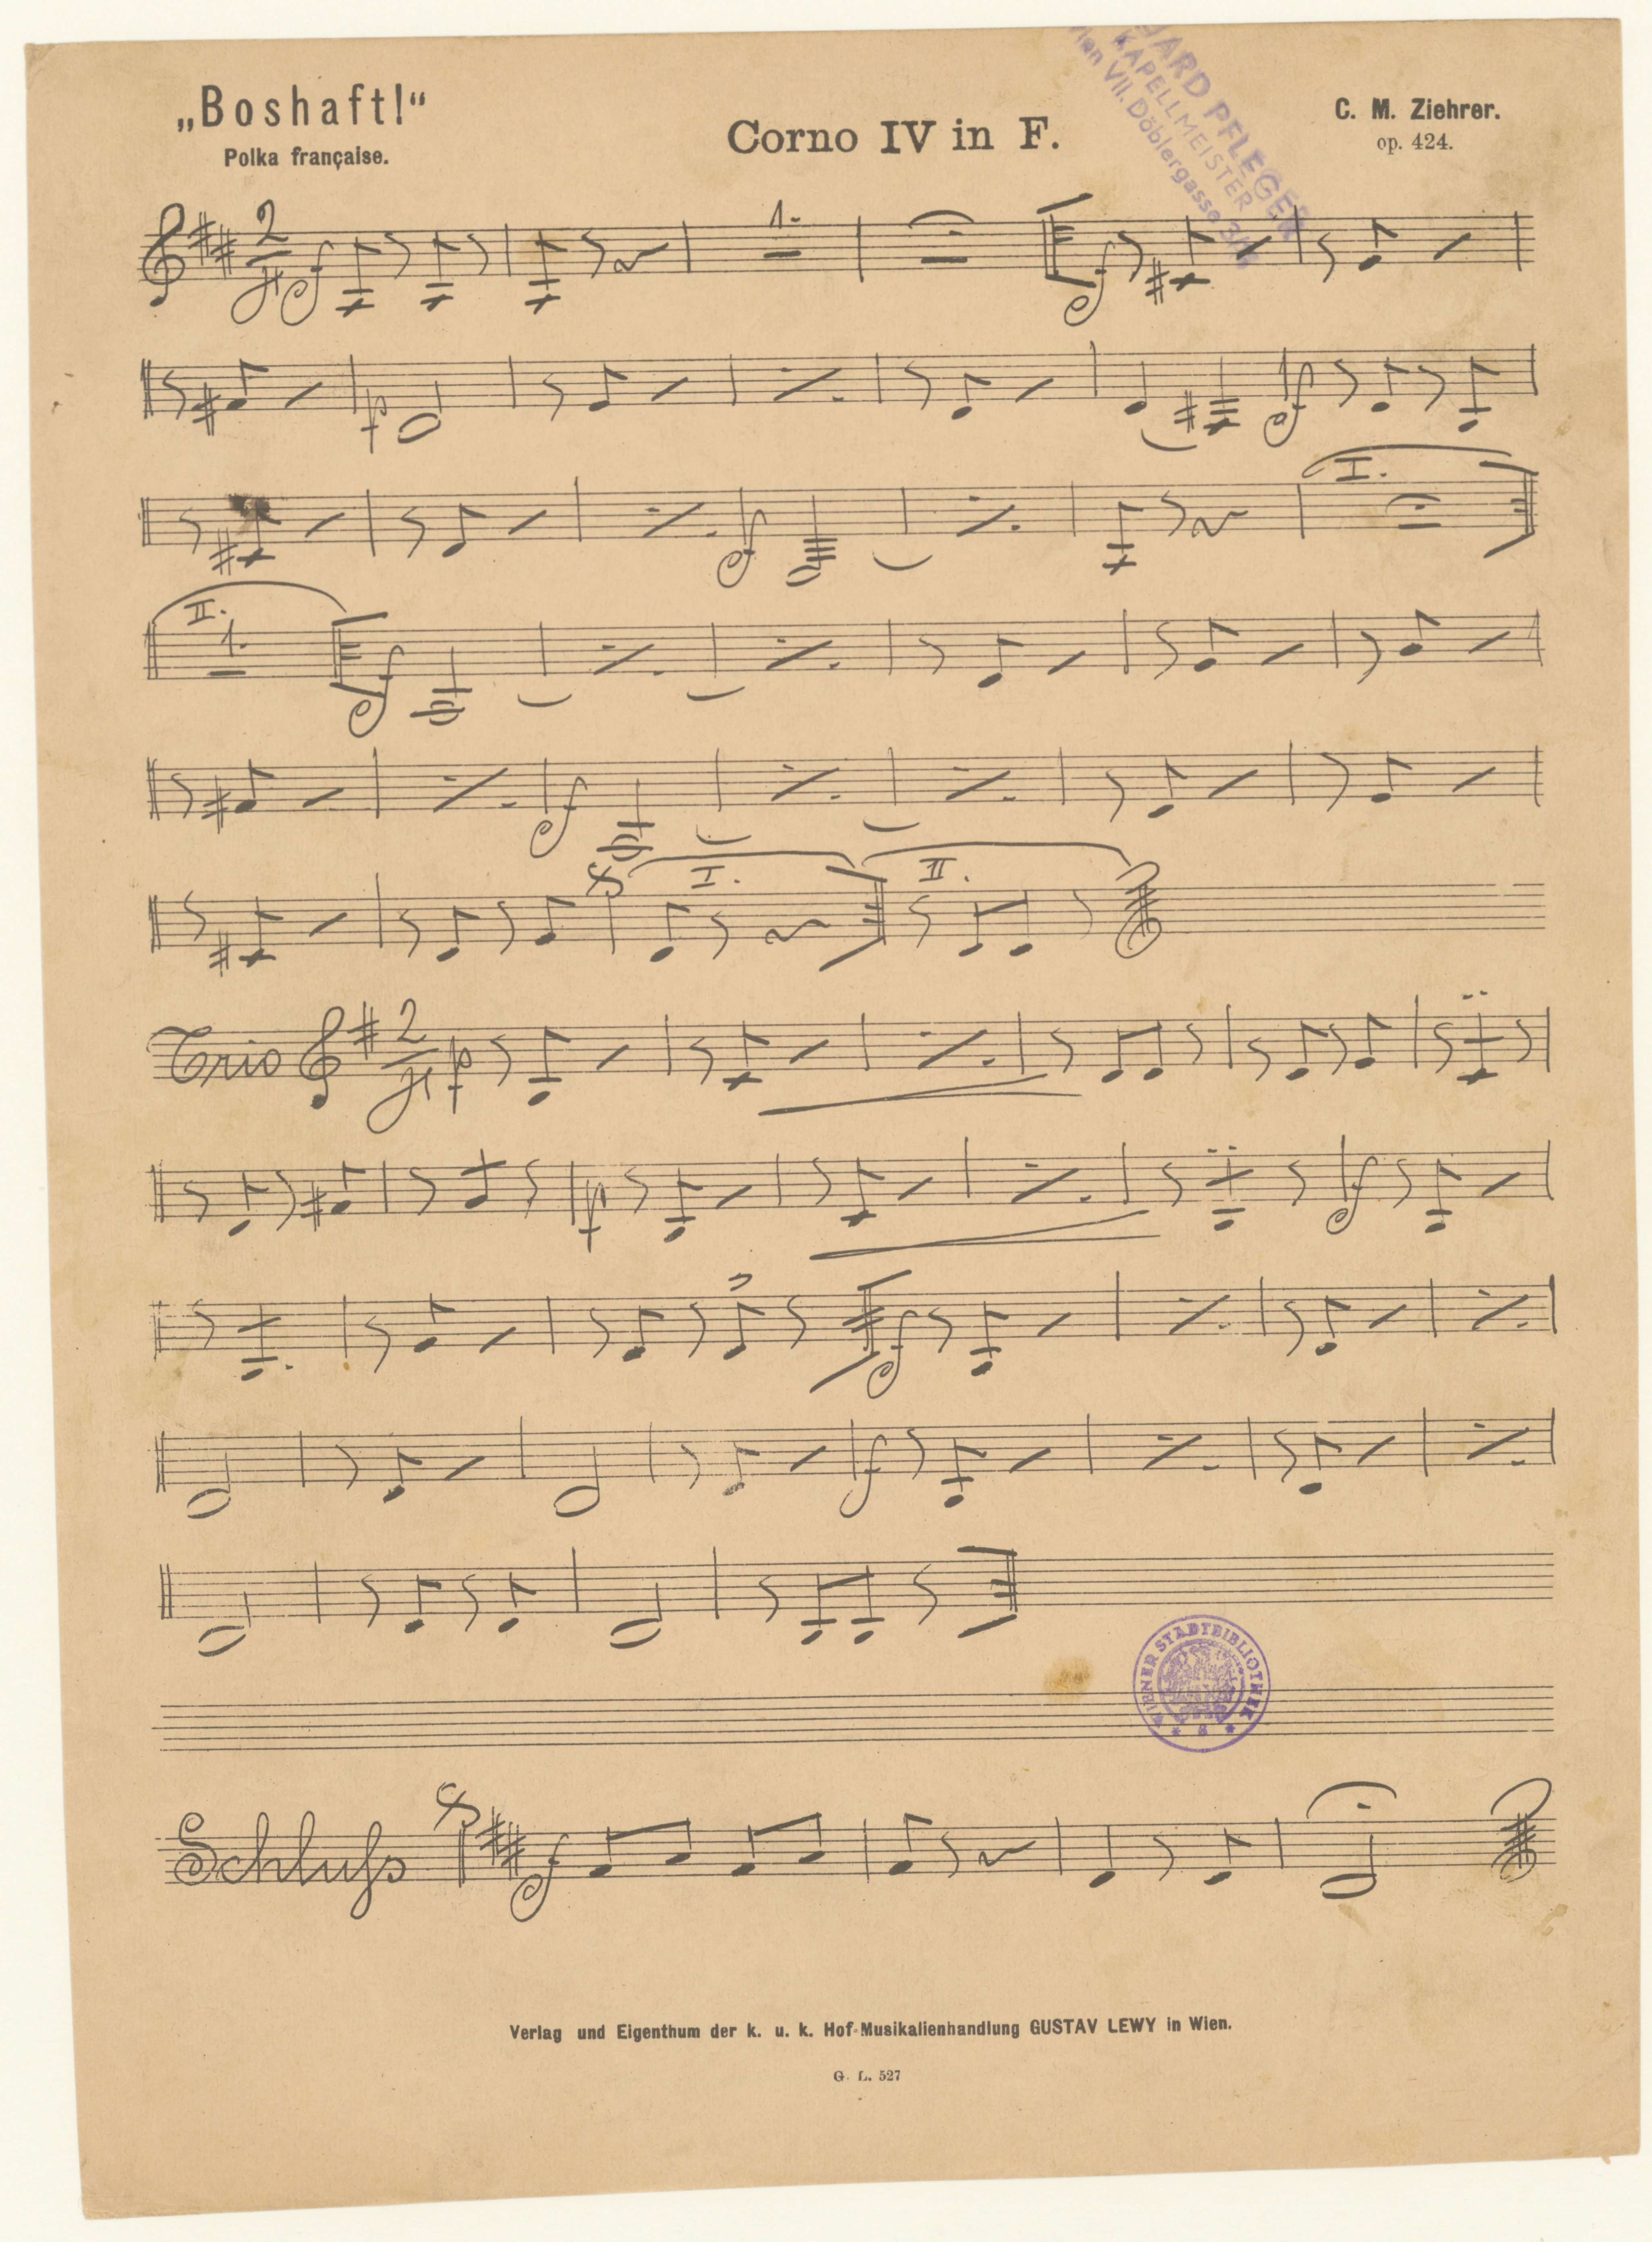 „Boshaft!“
Polka française.
Corno IV in F.
C. M. Ziehrer.
op. 424.
PFLEGER
KAPELLMEISTER
Wien VII. Döblergasse
1.
I.
II.
1.
I.
II.
Trio
WIENER STADTBIBLIOTHEK
Schluſs
Verlag und Eigenthum der k. u. k. Hof-Musikalienhandlung GUSTAV LEWY in Wien.
G. L. 527